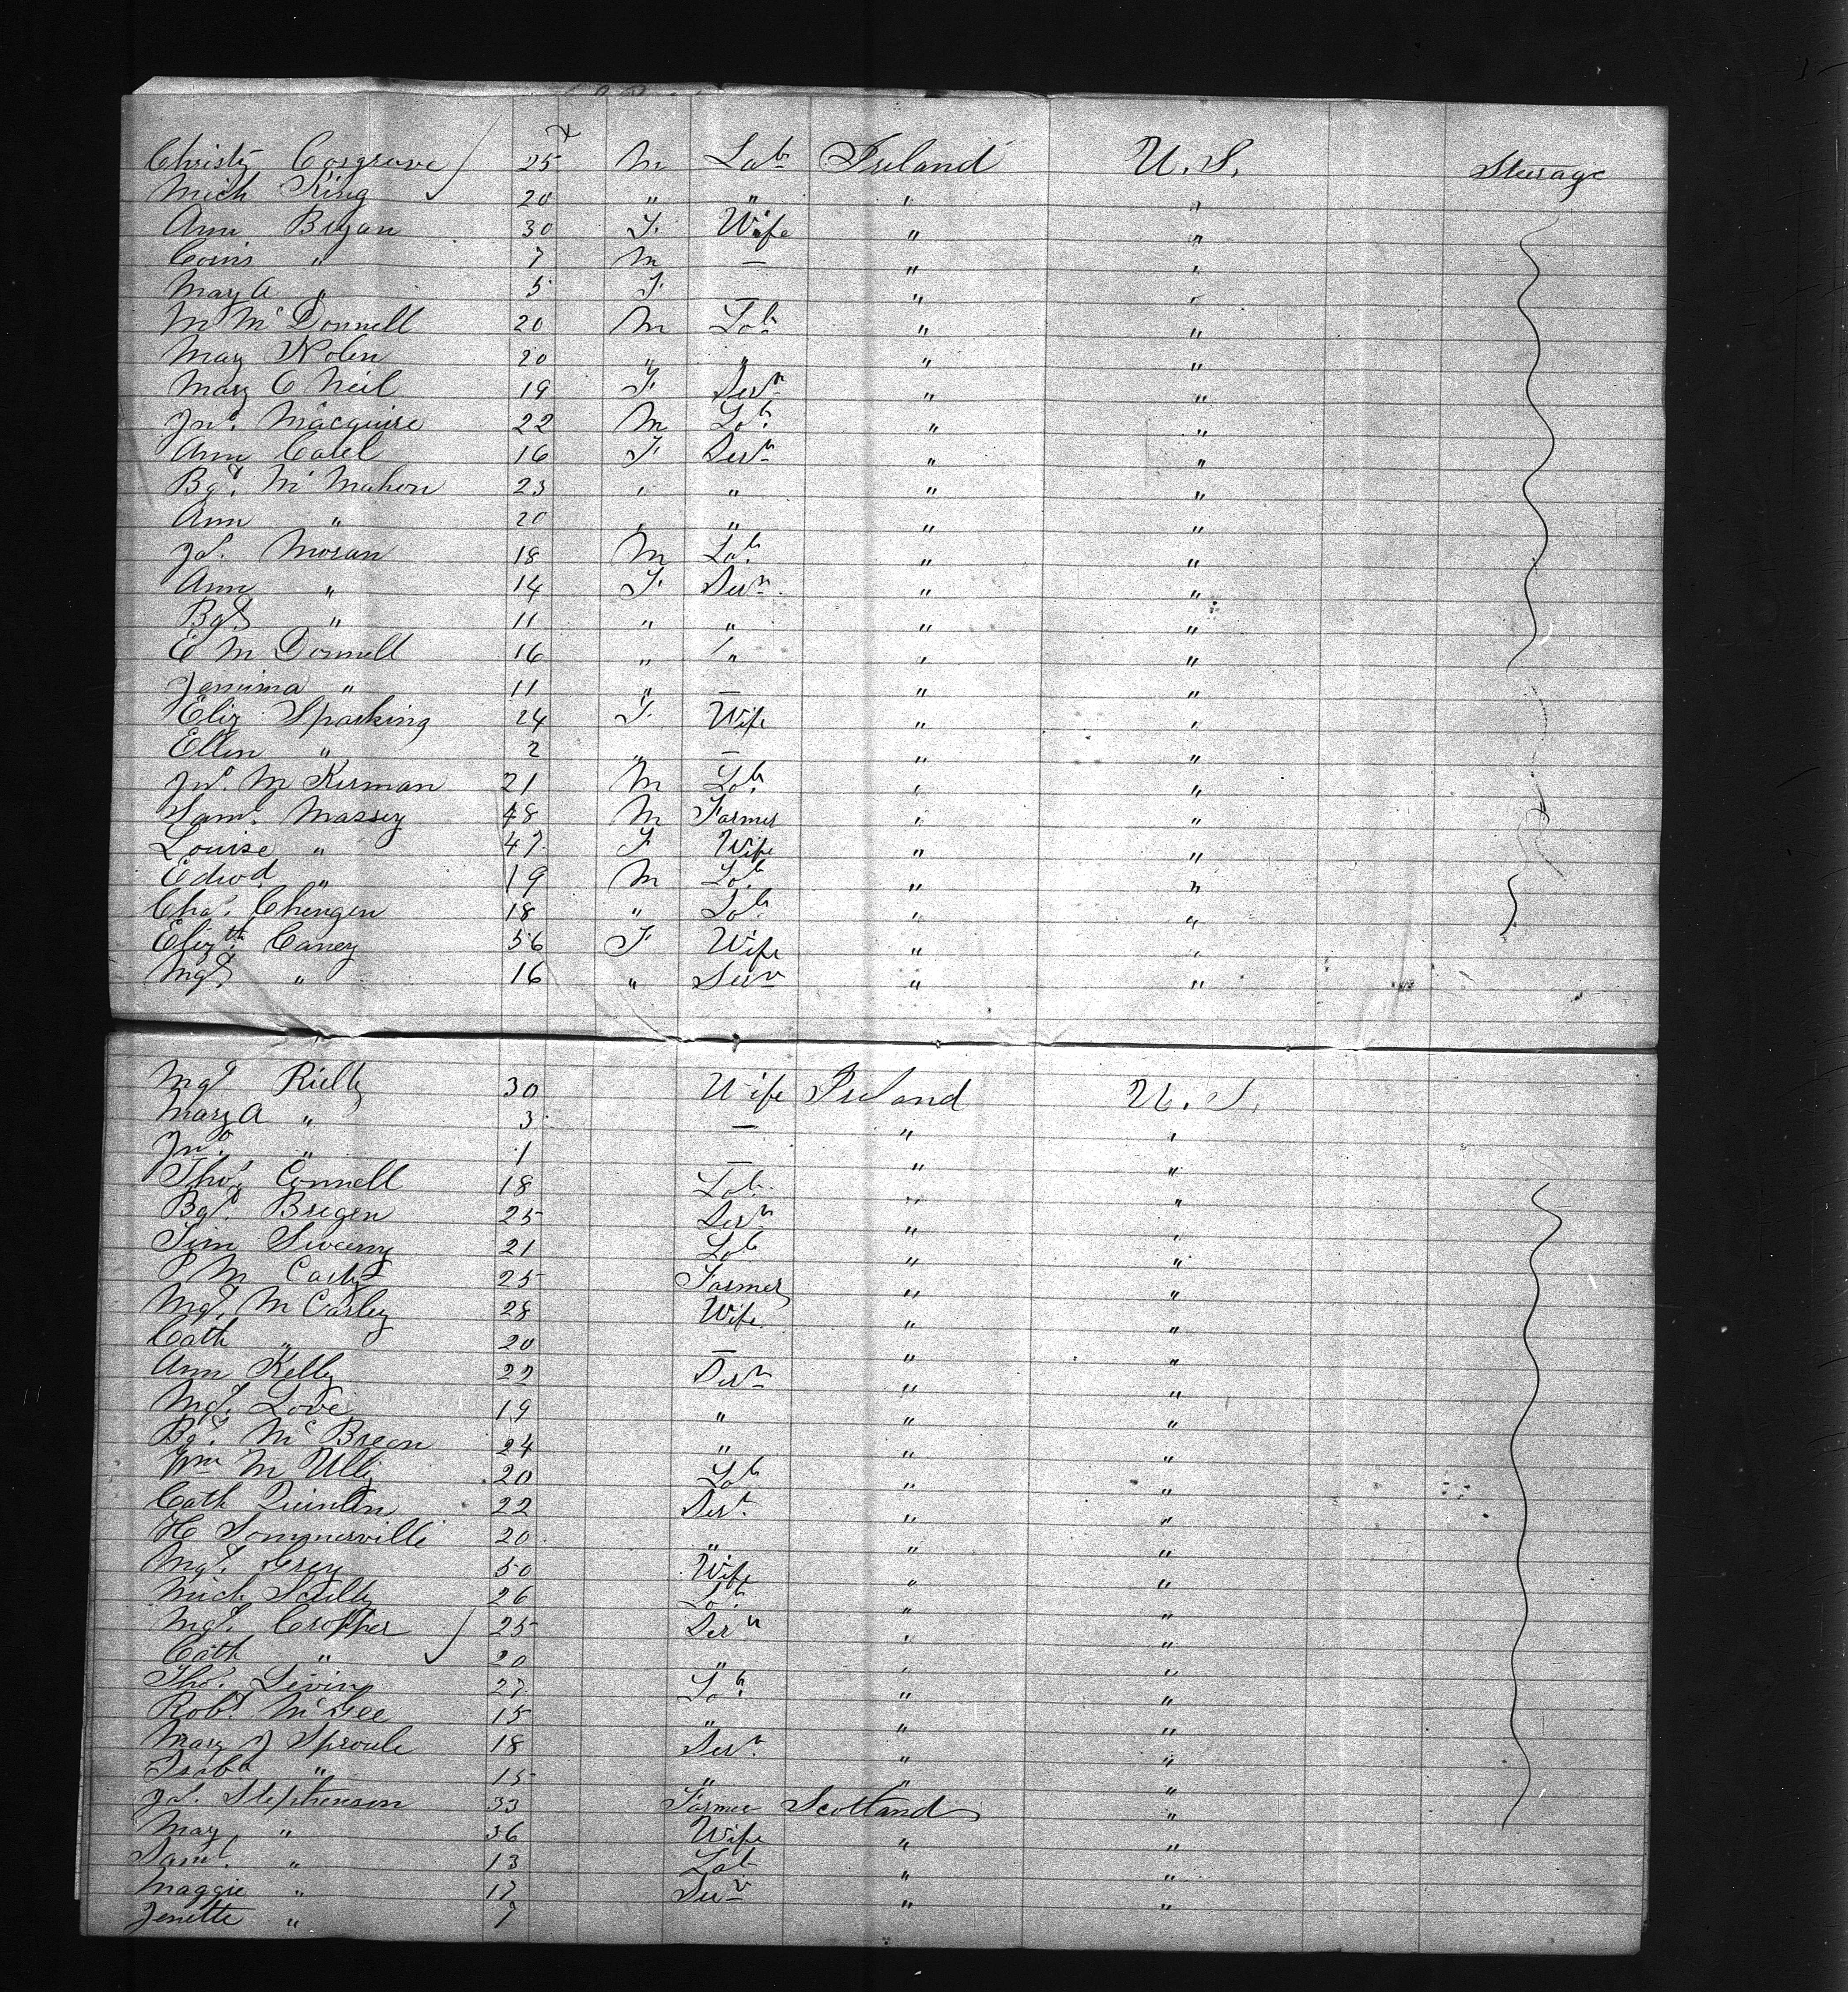 Christy Cosgrave 25 M Lab Ireland U.S. Steerage
Mich King 20 " " " "
Ann Bryan 30 F. Wife " "
" 7 M — " "
Mary A " 5 F. — " "
M McDonnell 20 M Lab. " "
Mary Nolen 20 " " " "
Mary O Neil 19 F. Serv " "
Jno. Macquire 22 M Lab. " "
Ann 16 F Serv " "
Bgt. Mc Mahon 23 " " " "
Ann " 20 " " " "
Js. Moran 18 M Lab. " "
Ann " 14 F. Serv. " "
Bgt " 11 " " " "
E Mc Donnell 16 " " " "
Jemima " 11 " — " "
Eliz Sparking 24 F. Wife " "
Ellen " 2 " — " "
Jno. Mc Kerman 21 M Lab. " "
Saml. Massey 48 M Farmer " "
Louise " 47 F Wife " "
Edwd. " 19 M Lab. " "
Chas. Chengen 18 " Lab. " "
Elizth. Caney 56 F Wife " "
Mgt " 16 " Serv " "
Mgt Rielly 30 Wife Ireland U.S.
Mary A " 3 — " "
Jno. " 1 — " "
Thos. Connell 18 Lab. " "
Bgt. Bregen 25 Serv " "
Tim Sweeny 21 Lab " "
P Mc 25 Farmer " "
Mgt. Mc Carley 28 Wife " "
Cath " 20 — " "
Ann Kelly 22 Serv " "
Mgt. Love 19 " " "
Bgt. Mc Breen 24 " " "
Wm Mc 20 Lab " "
Cath Quinlan 22 Serv. " "
H Sommerville 20 " " "
Mgt. Grey 50 Wife " "
Mich Scully 26 Lab. " "
Mgt. Cropper 25 Serv " "
Cath " 20 " " "
Thos. Levin 27 Lab. " "
Robt. McGee 15 " " "
Mary J Sproule 18 Serv. " "
Isaba " 15 " " "
Js. Stephenson 33 Farmer Scotland "
Mary " 36 Wife " "
Saml. " 13 Lab " "
Maggie " 17 Serv " "
Jenette " 7